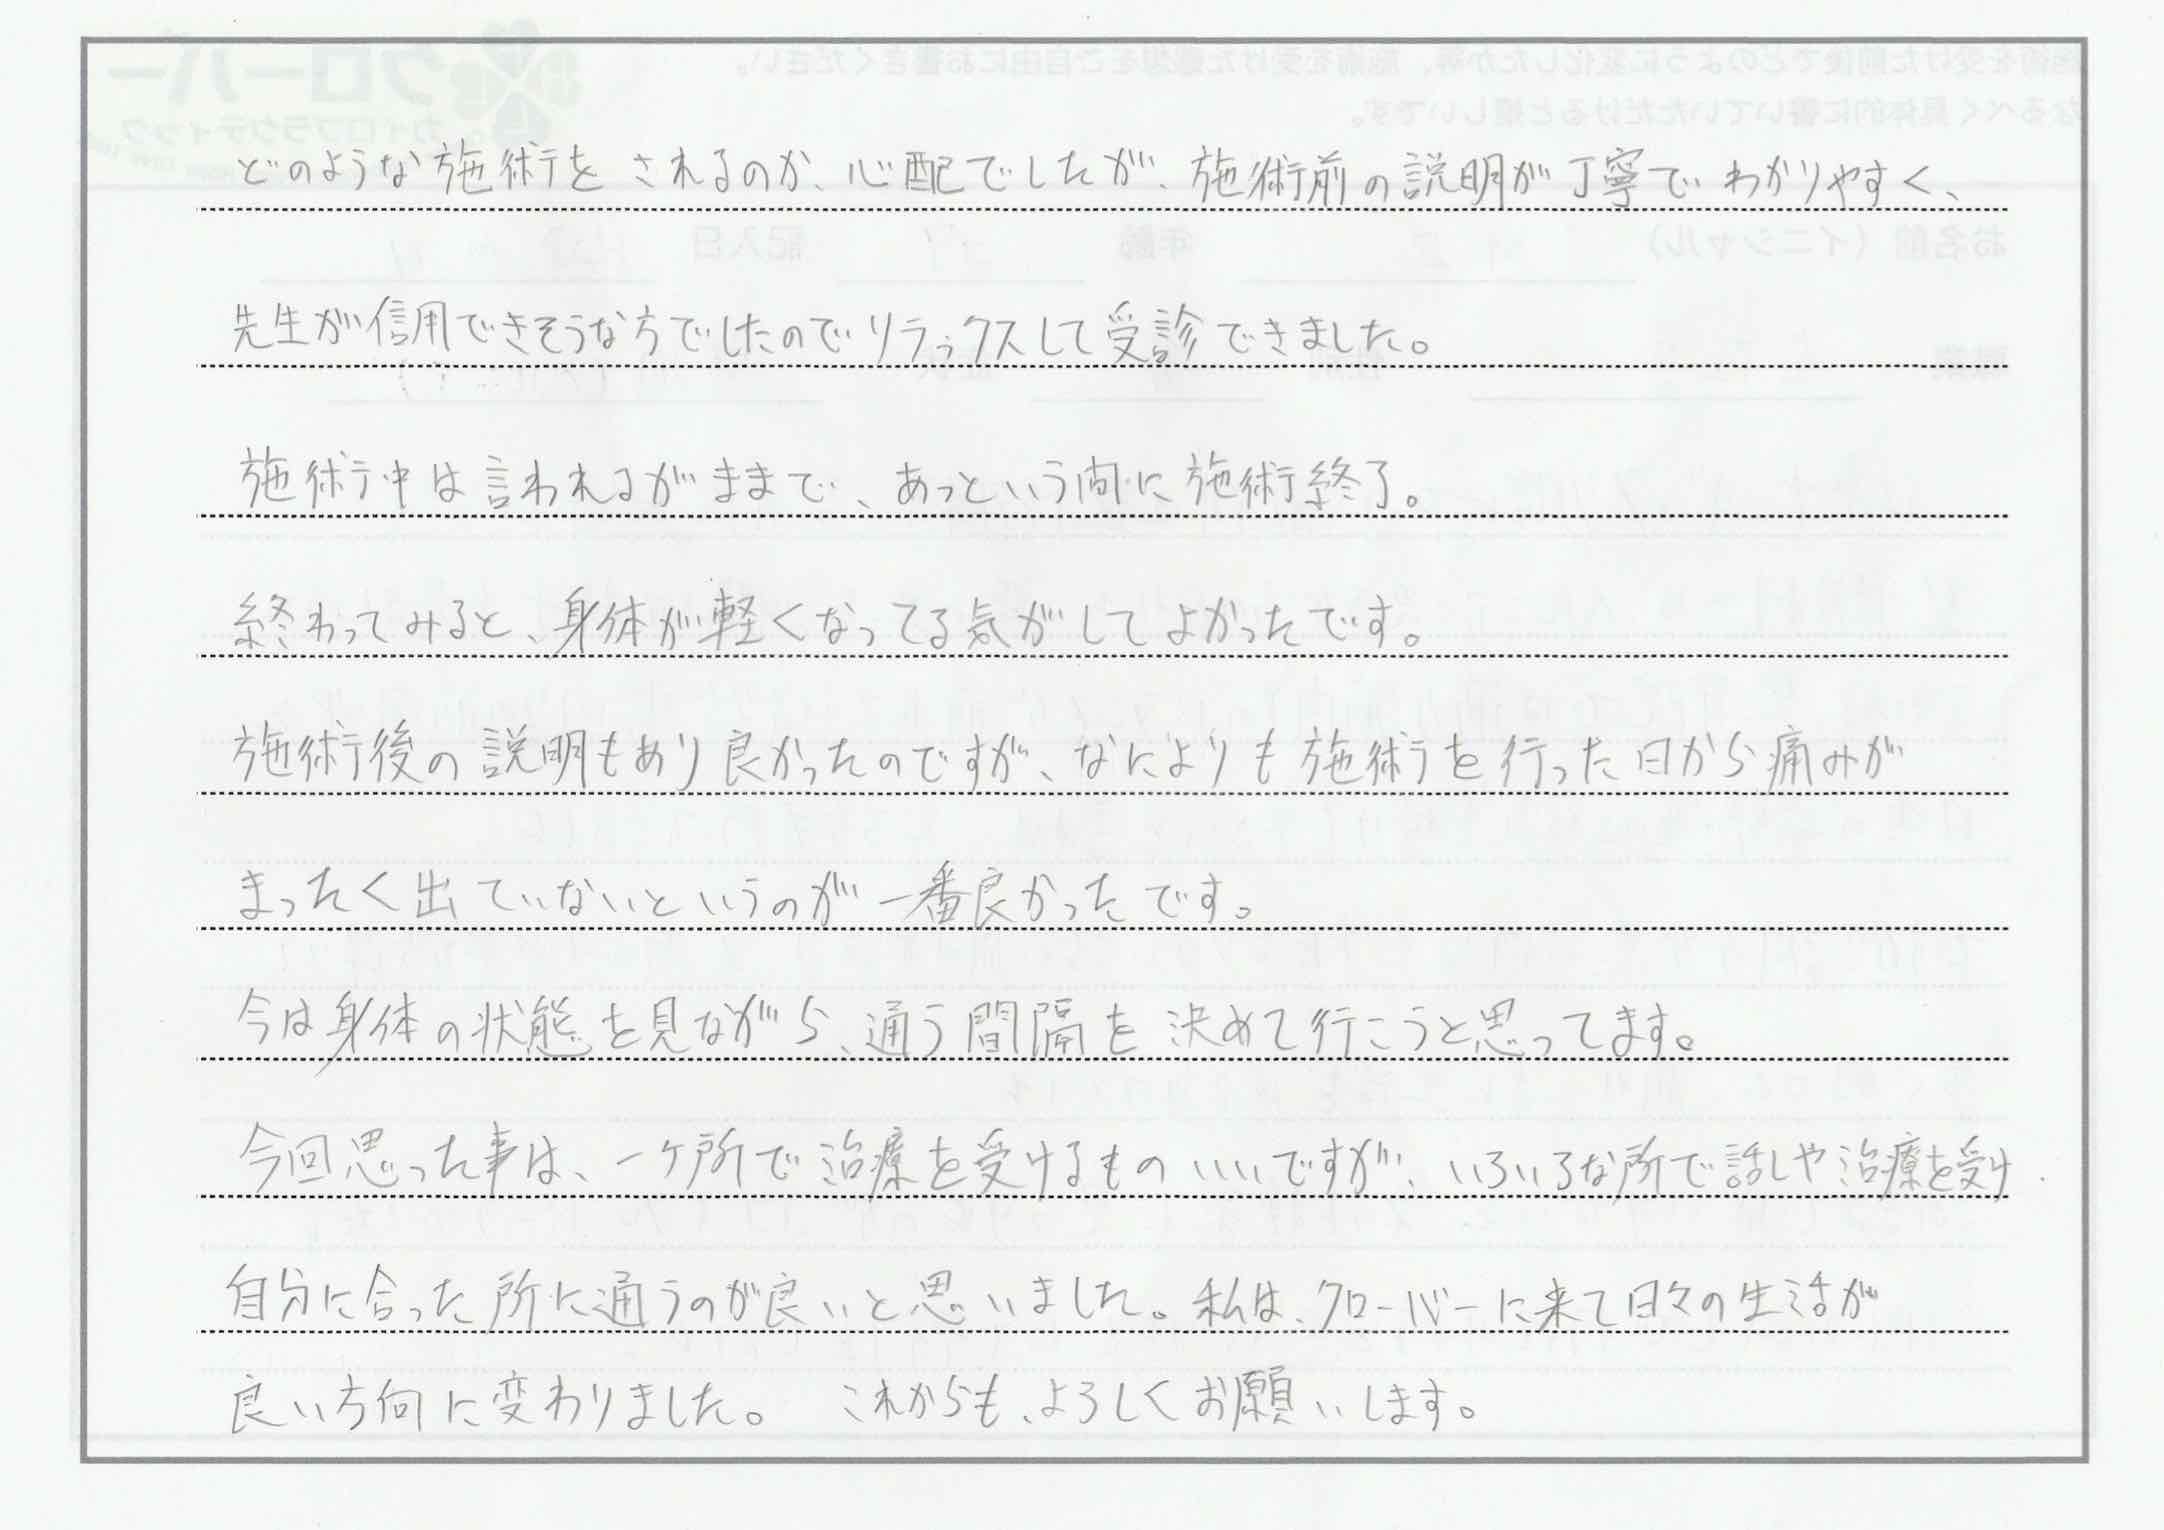 どのような施術をされるのか、心配でしたが、施術前の説明が丁寧でわかりやすく、
先生が信用できそうな方でしたのでリラックスして受診できました。
施術中は言われるがままで、あっという間に施術終了。
終わってみると、身体が軽くなってる気がしてよかったです。
施術後の説明もあり良かったのですが、なによりも施術を行った日から痛みが
まったく出ていないというのが一番良かったです。
今は身体の状態を見ながら、通う間隔を決めて行こうと思ってます。
今回思った事は、一ヶ所で治療を受けるものいいですが、いろいろな所で話しや治療を受け
自分に合った所に通うのが良いと思いました。私は、クローバーに来て日々の生活が
良い方向に変わりました。 これからも、よろしくお願いします。